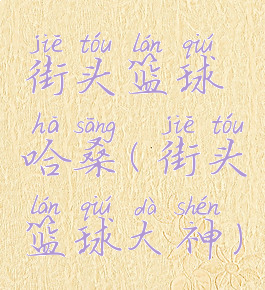 jiē tóu lán qiú
街头篮球
hā sāng jiē tóu
哈桑(街头
lán qiú dà shén
篮球大神)